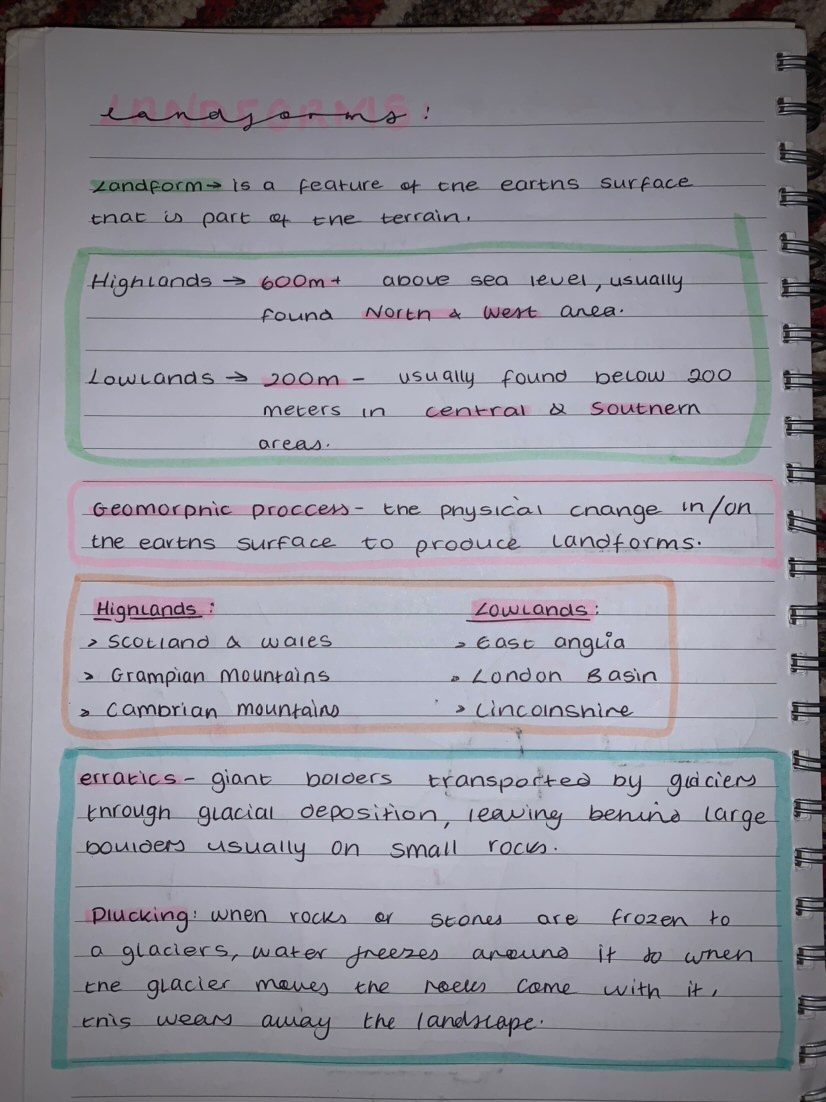 LANDFORMS
landforms:
Landform→ is a feature of the earths surface
that is part of the terrain.
Highlands → 600m+ above sea level, usually
found North & West area.
Lowlands → 200m - usually found below 200
meters in central & Southern
areas.
Geomorphic proccess - the physical change in/on
the earths surface to produce landforms.
Highlands:
> Scotland & Wales
> Grampian Mountains
> Cambrian mountains
Lowlands:
> East anglia
> London Basin
> Lincolnshire
erratics - giant bolders transported by glaciers
through glacial deposition, leaving behind large
boulders usually on small rocks.
Plucking: when rocks or stones are frozen to
a glaciers, water freezes around it so when
the glacier moves the rocks come with it,
this wears away the landscape.